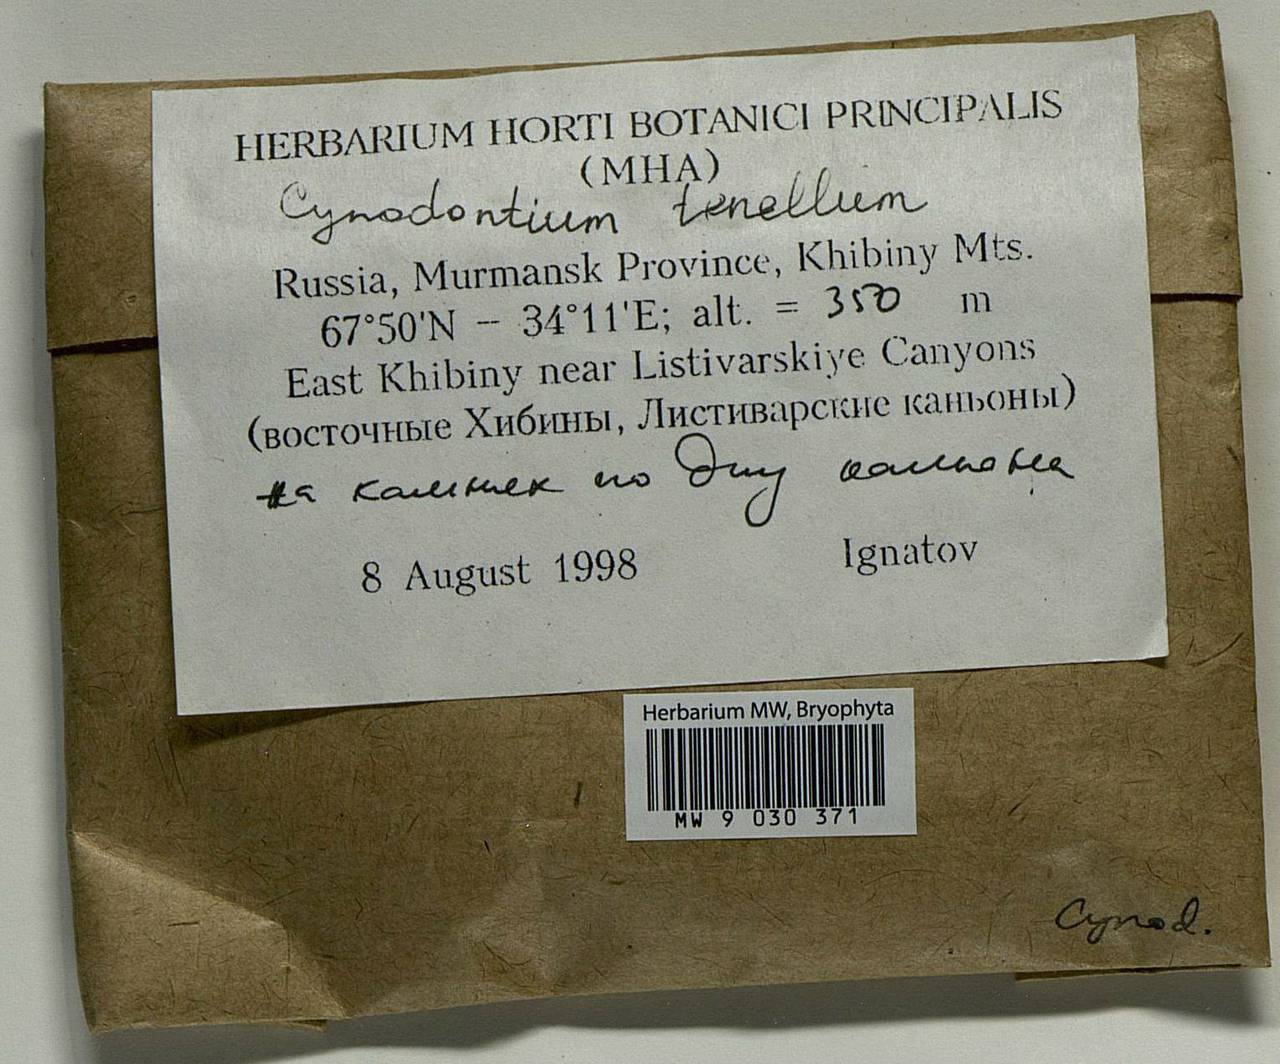 HERBARIUM HORTI BOTANICI PRINCIPALIS
(MHA)
Cynodontium tenellum
Russia, Murmansk Province, Khibiny Mts.
67°50'N – 34°11'E; alt. = 350 m
East Khibiny near Listivarskiye Canyons
(восточные Хибины, Листиварские каньоны)
на камнях по дну каньона
8 August 1998 Ignatov
Herbarium MW, Bryophyta
MW 9 030 371
Cynod.